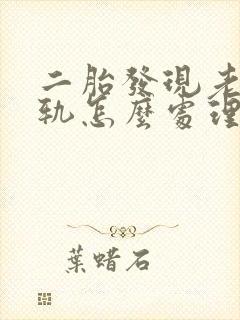 二胎發現老
軌怎麼處理
葉蜡石